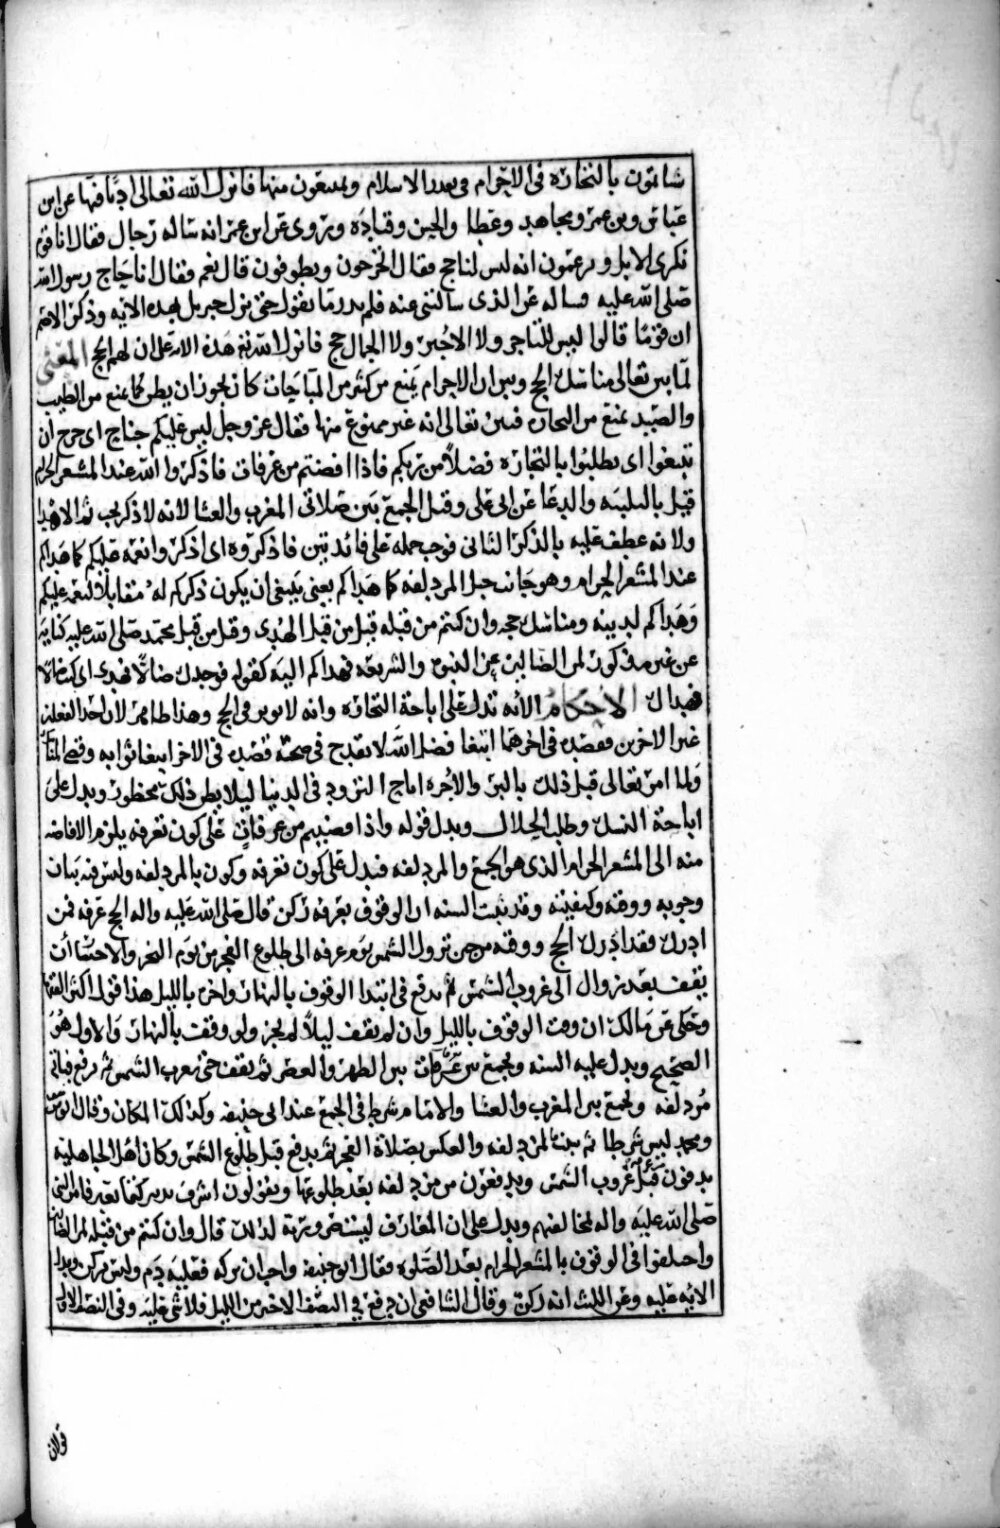 شاتمون بالتجارة في الاحرام في بدر الاسلام ويمنعون منها فانزل الله تعالى اذنا فيها عن ابن
عباس وبن عمر ومجاهد وعطا والحسن وقتادة وتروى عن ابن عمر انه ساله رجال فقال انا قوم
نكرى الابل ويزعمون انه ليس لنا حج فقال الخرجون ويطوفون قال نعم فقال انا حاج رسول الله
صلى الله عليه وساله عن الذي سالتني عنه فلم يدر ما يقول حتى نزل جبريل بهذه الايه وذكر الاصم
ان قوما قالوا ليس للتاجر ولا الاجير ولا الجمال حج فانزل الله هذه الايه على ان لهم الحج المعنى
لما بين تعالى مناسك الحج وبين ان الاحرام يمنع من كثير من المباحات كان يجوز ان يظن كما يمنع من الطيب
والصيد يمنع من التجاره فبين تعالى انه غير ممنوع منها فقال عز وجل ليس عليكم جناح اي حرج ان
تبتغوا اي تطلبوا بالتجاره فضلا من ربكم فاذا افضتم من عرفات فاذكروا الله عند المشعر الحرام
قيل بالتلبيه والدعا عن ابي علي وقيل الجمع بين صلاتي المغرب والعشا لانه لا ذكر يجب ثم الا هذا
ولانه عطف عليه بالذكر الثاني فوجب حمله على فائدتين فاذكروه اي اذكروا نعمه عليكم كما هداكم
عند المشعر الحرام وهو جانب جبل المزدلفه كما هداكم يعني ينبغي ان يكون ذكركم له مقابلا لنعمه عليكم
وهداكم لدينه ومناسك حجه وان كنتم من قبله قيل من قبل الهدى وقيل من قبل محمد صلى الله عليه كناية
عن غير مذكور لمن الضالين عن النبوه والشريعه فهداكم اليه كقوله فوجدك ضالا فهدى اي كنت ضالا
فهداك الاحكام الايه تدل على اباحة التجاره وانه لا يوثر في الحج وهذا ظاهر لان احد الفعلين
غير الاخر بن فقصده في احرهما ابتغا فضل الله لا يقدح في صحة قصده في الاخر ابتغا ثوابه وقضى المناسك
ولما امر تعالى قبل ذلك بالبر والاجره اباح التزود في الدنيا ليلا يظن ذلك محظور ويدل على
اباحة النسل وطلب الحلال ويدل قوله واذا افضتم من عرفات على كون بعرفه يلزم الافاضه
منه الى المشعر الحرام الذي هو الجمع والمزدلفه فيدل على كون بعرفه وكون بالمزدلفه وليس فيه بيان
وجوبه ووقته وكيفيته وقد ثبت السنه ان الوقوف بعرفه ركن قال صلى الله عليه واله الحج عرفه فمن
ادرك فقد ادرك الحج ووقته من حين تزول الشمس يوم عرفه الى طلوع الفجر من يوم النحر والاحسنا أن
يقف بعد زوال الى غروب الشمس ثم يدفع في ابتدا الوقوف بالنهار واخره بالليل هذا قول اكثر الفقها
وحكى عن مالك ان وقت الوقوف بالليل وان لم يقف ليلا لم يجز ولو وقف بالنهار والاول هو
الصحيح ويدل عليه السنه ويجمع بين عرفات بين الظهر والعصر ثم يقف حتى تغرب الشمس ثم يدفع فياتي
مزدلفه ويجمع بين المغرب والعشا والامام شرط في الجمع عند ابي حنيفه وكذلك المكان وقال ابو يوسف
ومحمد ليس شرطا ثم يبيت المزدلفه والعكس بصلاة الفجر ثم يدفع قبل طلوع الشمس وكان اهل الجاهلية
يدفون قبل غروب الشمس ويدفعون من مزدلفه بعد طلوعها ويقولون اشرق ثبير كيما نغير فامر النبي
صلى الله عليه واله لمخالفتهم ويدل على ان المعارف ليست ضرورية لذلك قال وان كنتم من قبله لمن الضالين
واختلفوا في الوقوف بالمشعر الحرام بعد الصلوه فقال ابو حنيفه واجب ان تركه فعليه دم وليس بركن ويدل
الايه عليه وعن الليث انه ركن وقال الشافعي ان دفع في النصف الاخير من الليل فلا شي عليه وفي النصف الاول
قولان